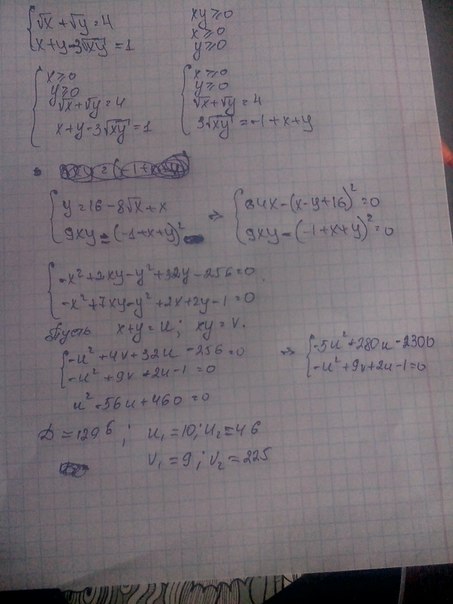 √x + √y = 4
x + y - 3√xy = 1
xy ≥ 0
x ≥ 0
y ≥ 0
x ≥ 0
y ≥ 0
√x + √y = 4
x + y - 3√xy = 1
x ≥ 0
y ≥ 0
√x + √y = 4
3√xy = -1 + x + y
y = 16 - 8√x + x
9xy = (-1 + x + y)²
⇒
64x - (x - y + 16)² = 0
9xy - (-1 + x + y)² = 0
-x² + 2xy - y² + 32y - 256 = 0
-x² + 7xy - y² + 2x + 2y - 1 = 0
Пусть x + y = u; xy = v.
-u² + 4v + 32u - 256 = 0
-u² + 9v + 2u - 1 = 0
⇒
-5u² + 280u - 2300
-u² + 9v + 2u - 1 = 0
u² - 56u + 460 = 0
D = 1296; u₁ = 10; u₂ = 46
v₁ = 9; v₂ = 225